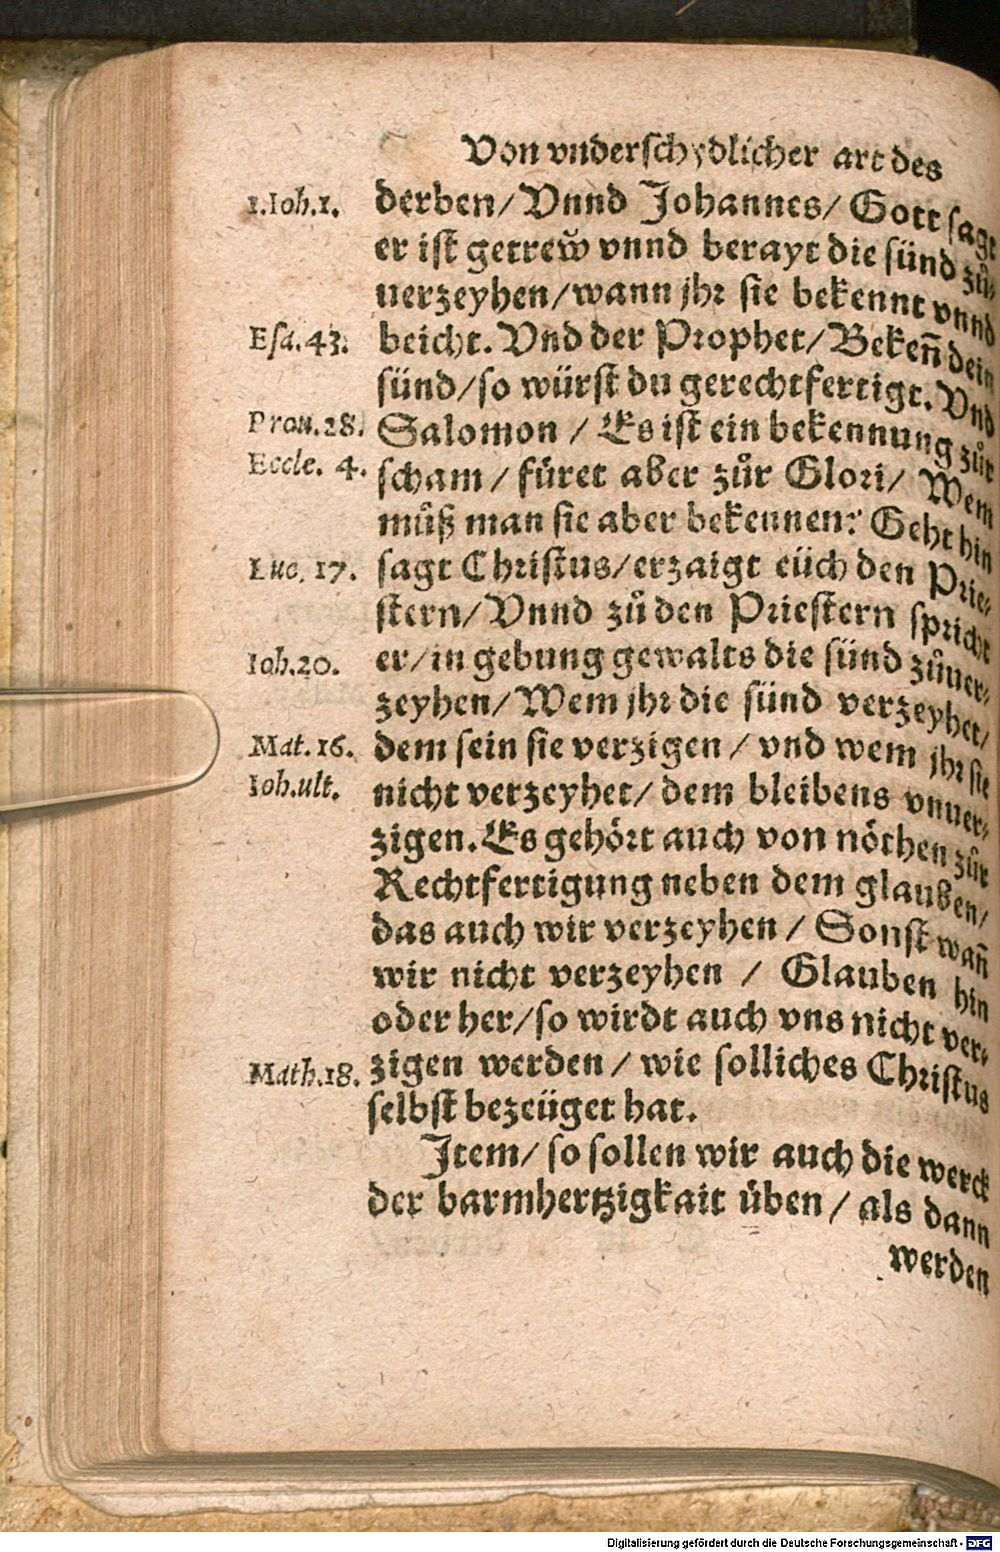 Von vnderschydlicher art des
1.Ioh.1.
derben/ Vnnd Johannes/ Gott sagt
er ist getrew̃ vnnd berayt die sünd zů-
uerzeyhen/wann jhr sie bekennt vnnd
Esa.43.
beicht. Vnd der Prophet/ Bekeñ dein
sünd/so würst du gerechtfertigt. Vnd
Prou.28.
Salomon / Es ist ein bekennung zůr
Eccle. 4.
scham / füret aber zůr Glori/ Wem
můß man sie aber bekennen? Geht hin
Luc. 17.
sagt Christus/erzaigt eüch den Prie-
stern/ Vnnd zů den Priestern spricht
Ioh.20.
er/in gebung gewalts die sünd zůuer-
zeyhen/ Wem jhr die sünd verzeyhet/
Mat.16.
dem sein sie verzigen / vnd wem jhr sie
Ioh.ult.
nicht verzeyhet/ dem bleibens vnuer-
zigen. Es gehört auch von nöthen zůr
Rechtfertigung neben dem glauben/
das auch wir verzeyhen / Sonst wañ
wir nicht verzeyhen / Glauben hin
oder her/so wirdt auch vns nicht ver-
Math.18.
zigen werden / wie solliches Christus
selbst bezeüget hat.
Item/ so sollen wir auch die werck
der barmhertzigkait üben / als dann
werden
Digitalisierung gefördert durch die Deutsche Forschungsgemeinschaft - DFG